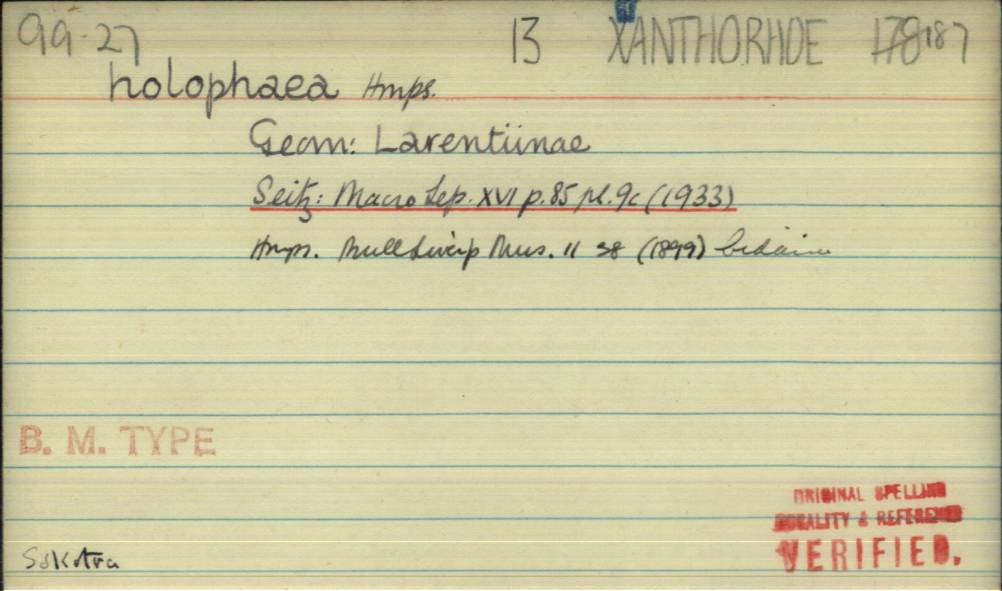 99.27 13 XANTHORHOE 178 187
holophaea Hmps.
Geom: Larentiinae
Seitz: Macro Lep. XVI p.85 pl.9c (1933)
Hmps. Bull Liverp Mus. II 38 (1899) Cidaria
B. M. TYPE
ORIGINAL SPELLING
LOCALITY & REFERENCE
VERIFIED.
Sokotra